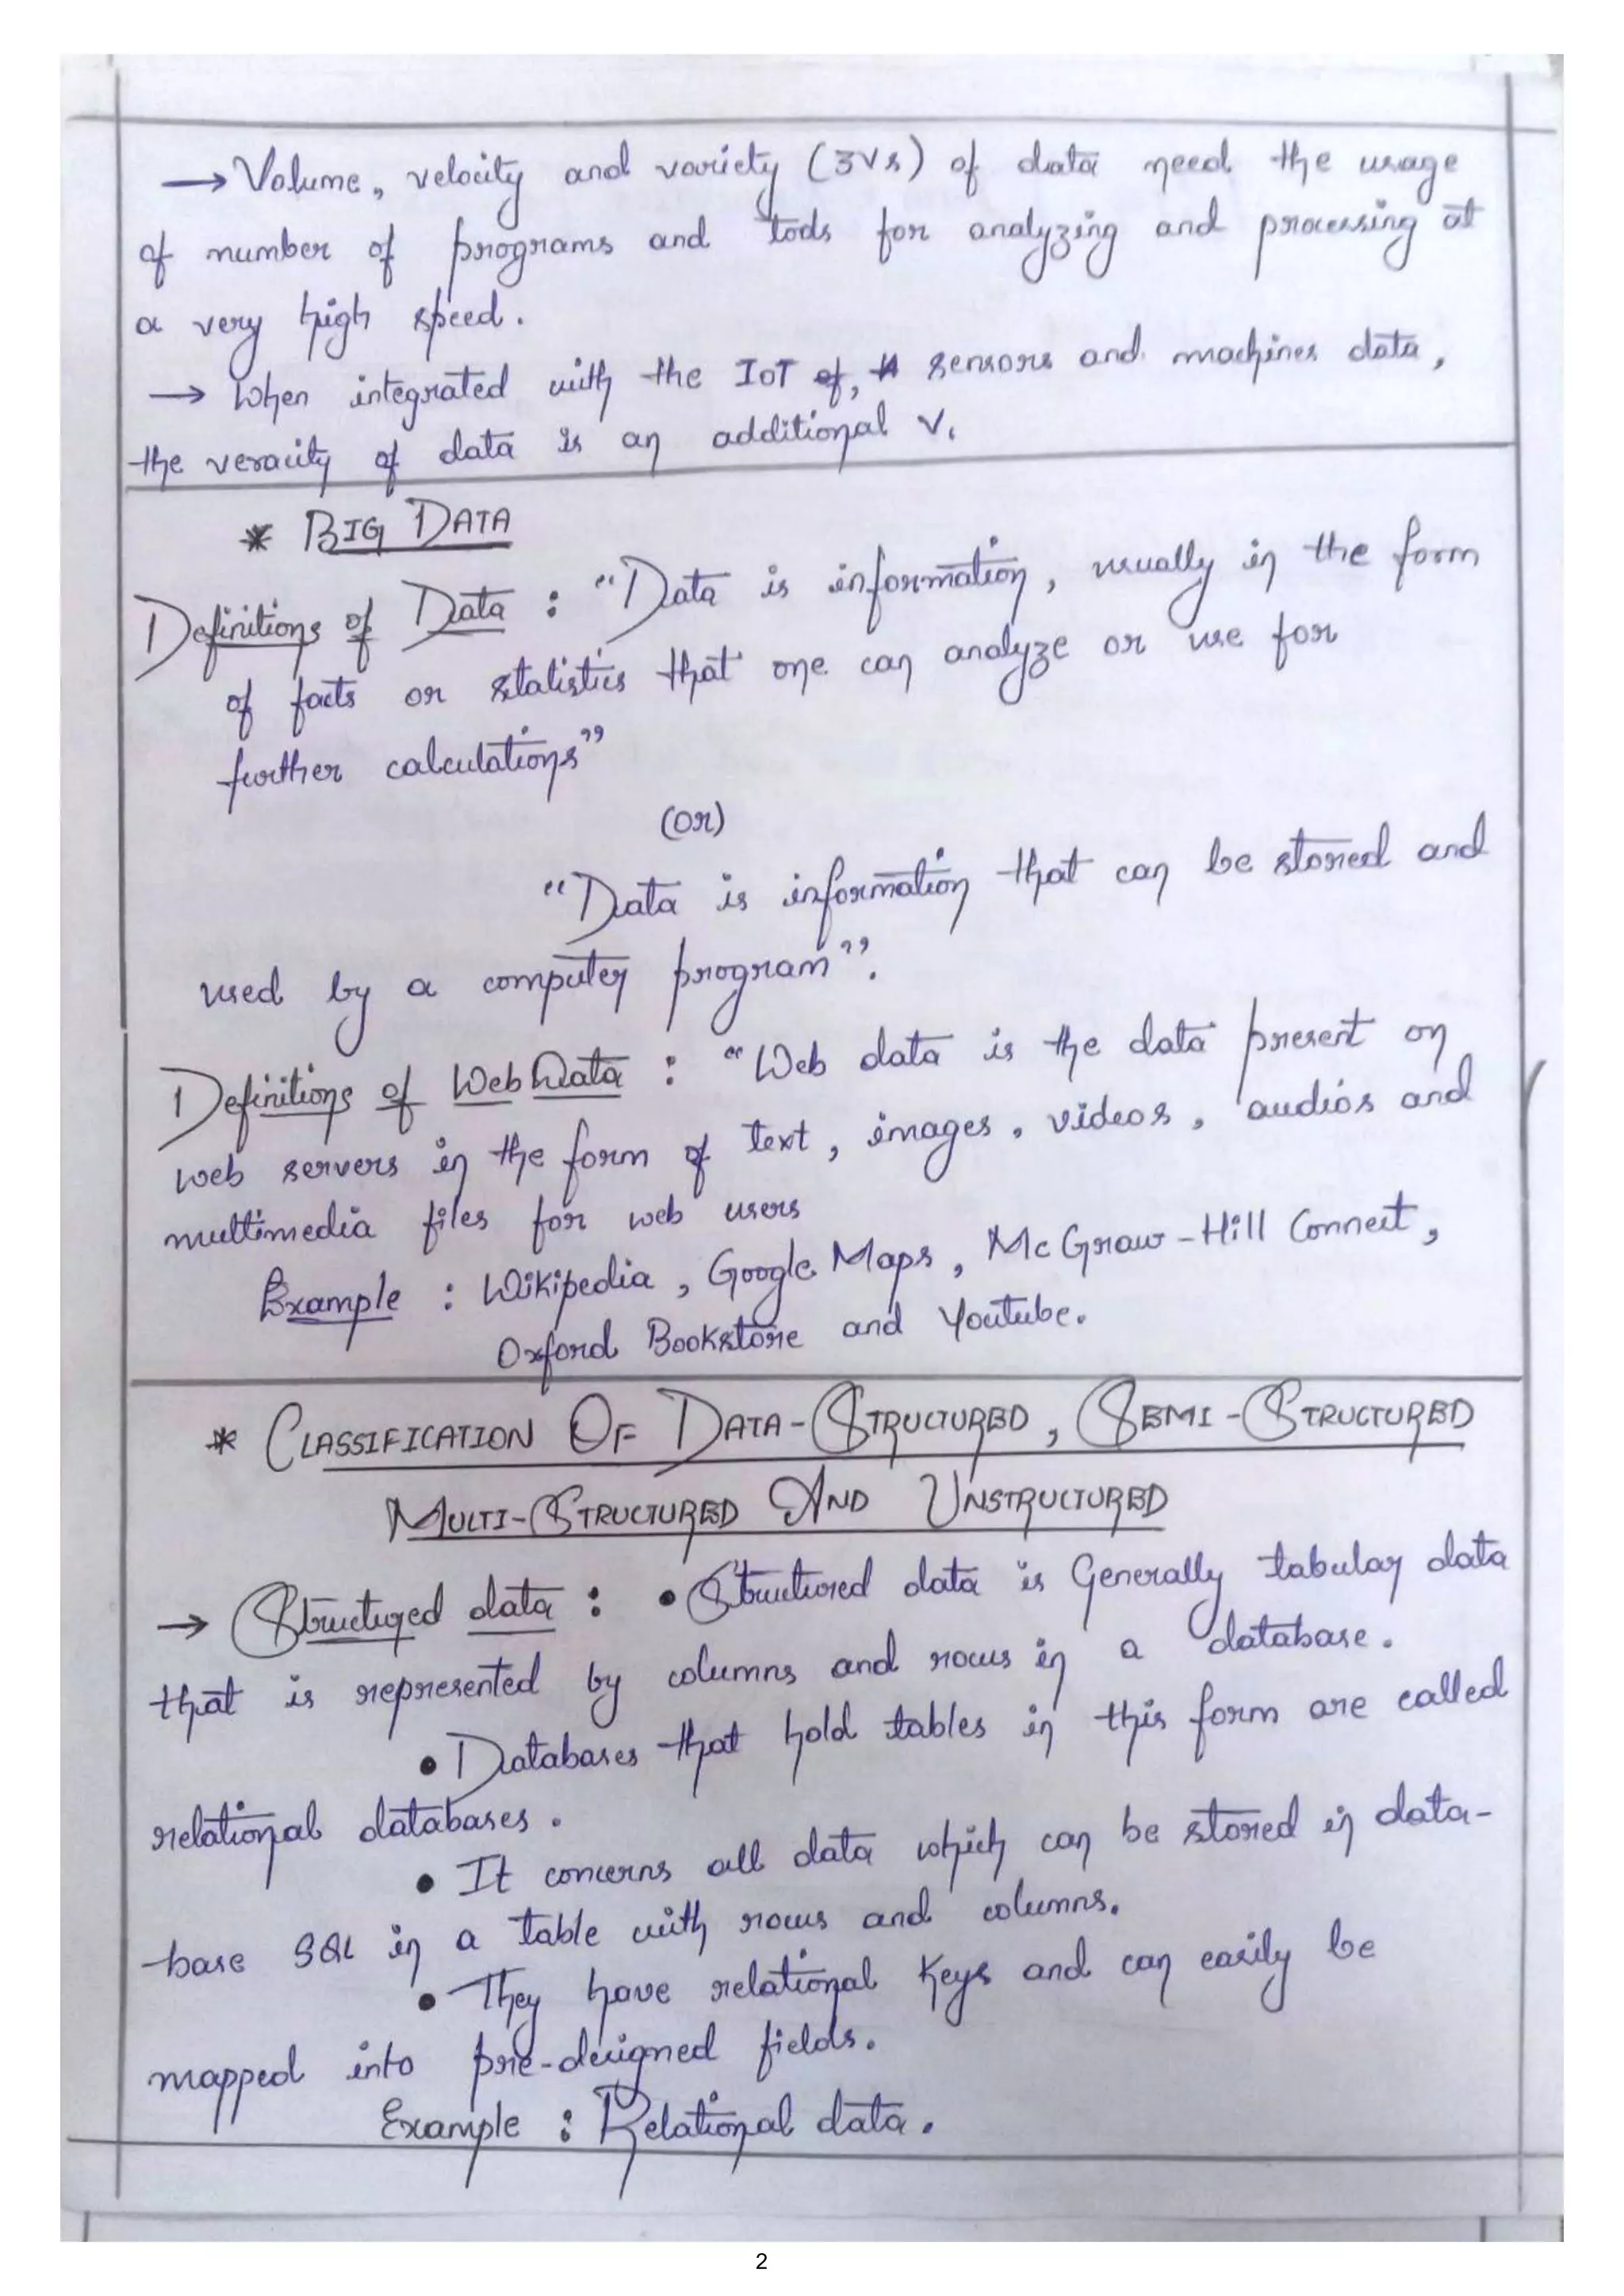 → Volume, velocity and variety (3Vs) of data need the usage
of number of programs and tools for analyzing and processing at
a very high speed.
→ When integrated with the IoT of, sensors and machines data,
the veracity of data is an additional V.
* BIG DATA
Definitions of Data : "Data is information, usually in the form
of facts or statistics that one can analyze or use for
further calculations"
(or)
"Data is information that can be stored and
used by a computer program".
Definitions of Web Data : "Web data is the data present on
web servers in the form of text, images, videos, audios and
multimedia files for web users
Example : Wikipedia, Google Maps, McGraw-Hill Connect,
Oxford Bookstore and Youtube.
* CLASSIFICATION OF DATA-STRUCTURED, SEMI-STRUCTURED
MULTI-STRUCTURED AND UNSTRUCTURED
→ Structured data : • Structured data is Generally tabular data
that is represented by columns and rows in a database.
• Databases that hold tables in this form are called
relational databases.
• It concerns all data which can be stored in data-
base SQL in a table with rows and columns.
• They have relational Keys and can easily be
mapped into pre-designed fields.
Example : Relational data.
2